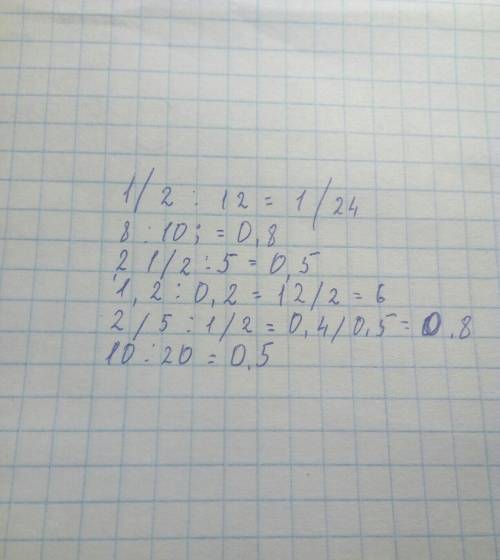 1/2 : 12 = 1/24
8 : 10 ; = 0,8
2 1/2 : 5 = 0,5
1,2 : 0,2 = 12/2 = 6
2/5 : 1/2 = 0,4/0,5 = 0.8
10 : 20 = 0,5